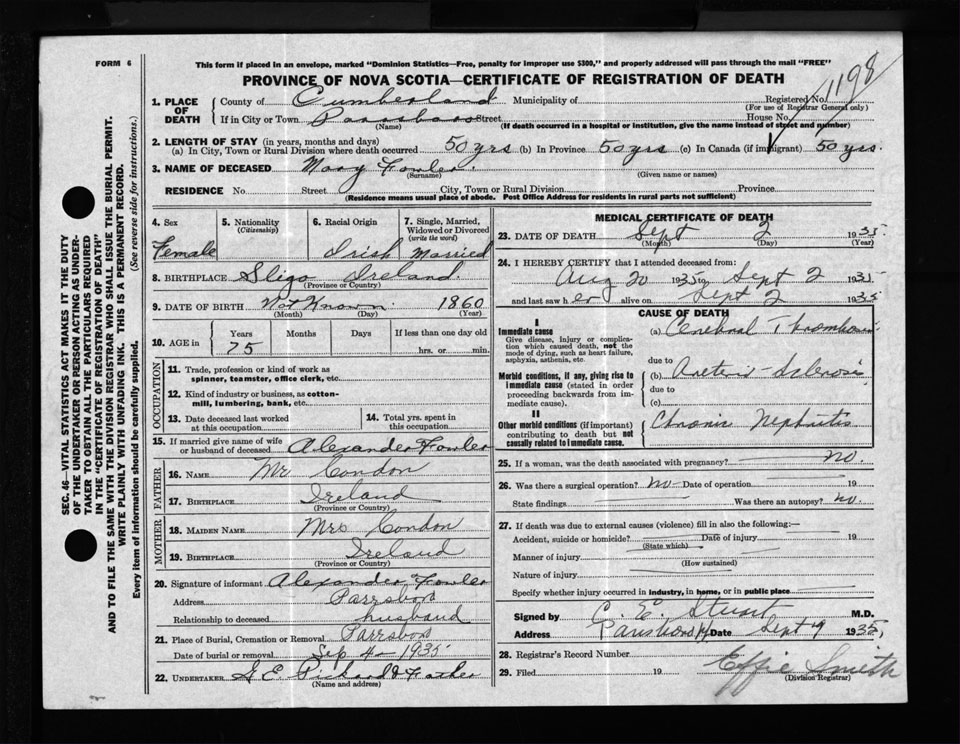 FORM 6
This form if placed in an envelope, marked "Dominion Statistics—Free, penalty for improper use $300," and properly addressed will pass through the mail "FREE"
PROVINCE OF NOVA SCOTIA—CERTIFICATE OF REGISTRATION OF DEATH
1198
SEC. 46—VITAL STATISTICS ACT MAKES IT THE DUTY
OF THE UNDERTAKER OR PERSON ACTING AS UNDER-
TAKER TO OBTAIN ALL THE PARTICULARS REQUIRED
IN THE "CERTIFICATE OF REGISTRATION OF DEATH"
AND TO FILE THE SAME WITH THE DIVISION REGISTRAR WHO SHALL ISSUE THE BURIAL PERMIT.
WRITE PLAINLY WITH UNFADING INK. THIS IS A PERMANENT RECORD.
Every item of information should be carefully supplied. (See reverse side for instructions.)
1. PLACE OF DEATH County of Cumberland Municipality of Registered No.
(For use of Registrar General only)
If in City or Town Parrsboro Street House No.
(Name) (If death occurred in a hospital or institution, give the name instead of street and number)
2. LENGTH OF STAY (in years, months and days)
(a) In City, Town or Rural Division where death occurred 50 yrs (b) In Province 50 yrs (c) In Canada (if immigrant) 50 yrs.
3. NAME OF DECEASED Mary Fowler
(Surname) (Given name or names)
RESIDENCE No. Street City, Town or Rural Division Province
(Residence means usual place of abode. Post Office Address for residents in rural parts not sufficient)
4. Sex 5. Nationality (Citizenship) 6. Racial Origin 7. Single, Married, Widowed or Divorced (write the word)
Female Irish Married
8. BIRTHPLACE Sligo Ireland
(Province or Country)
9. DATE OF BIRTH Not Known 1860
(Month) (Day) (Year)
10. AGE in Years Months Days If less than one day old
75 hrs. or min.
OCCUPATION
11. Trade, profession or kind of work as spinner, teamster, office clerk, etc.
12. Kind of industry or business, as cotton-mill, lumbering, bank, etc.
13. Date deceased last worked at this occupation
14. Total yrs. spent in this occupation
15. If married give name of wife or husband of deceased Alexander Fowler
FATHER
16. NAME Mr Condon
17. BIRTHPLACE Ireland
(Province or Country)
MOTHER
18. MAIDEN NAME Mrs Condon
19. BIRTHPLACE Ireland
(Province or Country)
20. Signature of informant Alexander Fowler
Address Parrsboro
Relationship to deceased husband
21. Place of Burial, Cremation or Removal Parrsboro
Date of burial or removal Sep 4 - 1935
22. UNDERTAKER
(Name and address)
MEDICAL CERTIFICATE OF DEATH
23. DATE OF DEATH Sept 2 1935
(Month) (Day) (Year)
24. I HEREBY CERTIFY that I attended deceased from:
Aug 20 1935 to Sept 2 1935
and last saw her alive on Sept 2 1935
CAUSE OF DEATH
I
Immediate cause
Give disease, injury or complication which caused death, not the mode of dying, such as heart failure, asphyxia, asthenia, etc.
(a) Cerebral Thrombosis
due to
Morbid conditions, if any, giving rise to immediate cause (stated in order proceeding backwards from immediate cause).
(b) Arterio-Sclerosis
due to
(c)
II
Other morbid conditions (if important) contributing to death but not causally related to immediate cause.
Chronic Nephritis
25. If a woman, was the death associated with pregnancy? no.
26. Was there a surgical operation? No Date of operation 19
State findings Was there an autopsy? no.
27. If death was due to external causes (violence) fill in also the following:—
Accident, suicide or homicide? Date of injury 19
(State which)
Manner of injury
(How sustained)
Nature of injury
Specify whether injury occurred in industry, in home, or in public place
Signed by C. E. Stuart M.D.
Address Parrsboro Date Sept 4 1935
28. Registrar's Record Number
29. Filed 19 Effie Smith
(Division Registrar)